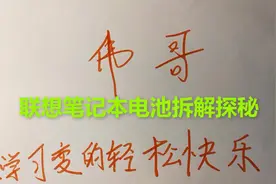 伟哥
联想笔记本电池拆解探秘
学习变的轻松快乐